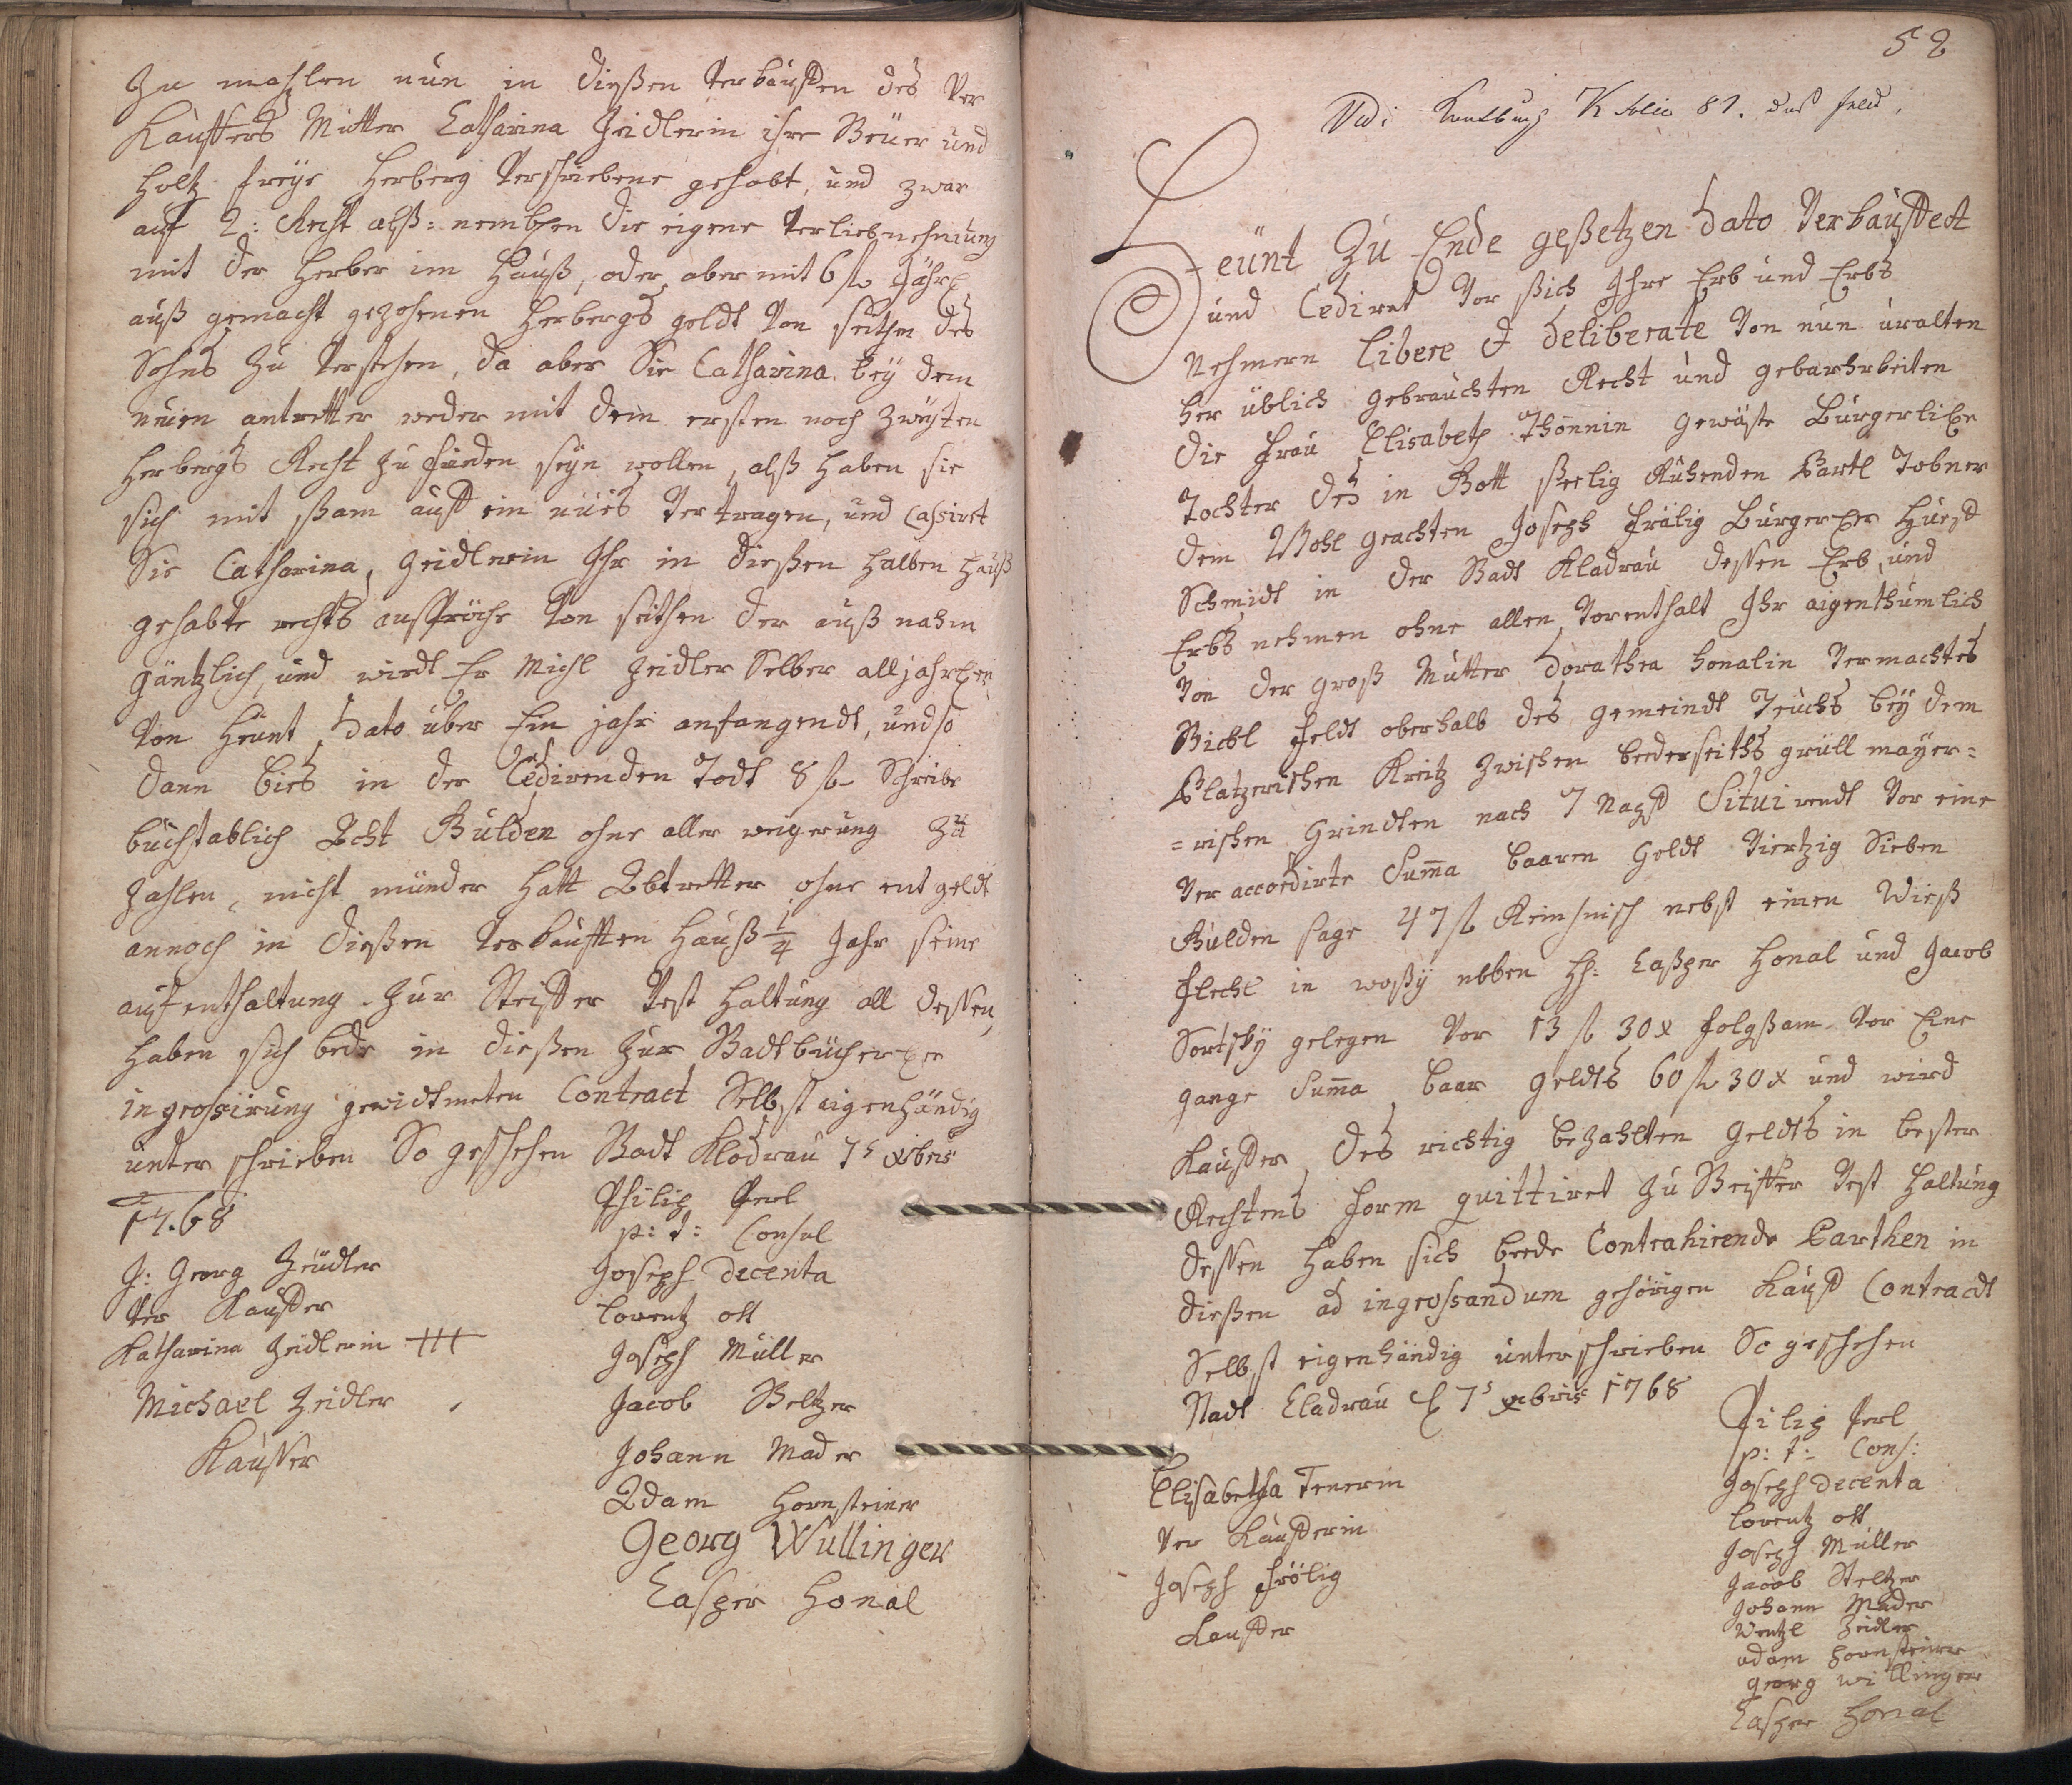 Zu mahlen nun in dießen verkaufften des ver
Kauffers Mutter Catharina Zeidlerin ihre Beüer und
Holtz freÿe Herberg verschriebene gehabt, und zwar
auf 2: Recht alß: nemblichen die eigene verliebnehmung
mit der Herber im Hauß, oder aber mit 6 fl Jährl
auß gemacht gezohenen Herbergs geldt von seithen des
Sohns zu verstehen, da aber Sie Catharina beÿ dem
neuen antretter weder mit dem ersten noch zweÿten
Herbergs Recht zu frieden seÿn wollen, alß haben sie
sich mit ßam auff ein neües vertragen, und Cassiret
Sie Catharina Zeidlerin Ihr in dießen halben Hauß
gehabte rechts ansprüche von seithen der auß nahm
gäntzlich, und wirdt Er Michl Zeidler Selber alljahrlich
von heünt Dato über Ein jahr anfangendt, und so
dann bies in der Cedirenden Todt 8 fl Schreibe
buchstablich Acht Gulden ohne aller weigerung zu
zahlen, nicht münder hatt Abtretter ohne entgeldt
annoch in dießen verkaufften Hauß 1/4 Jahr seine
aufenthaltung. Zur Steiffer vest haltung all dessen
haben sich bede in dießen zur Stadtbücherlicher
ingrossirung gewidtmeten Contract Selbst aigenhändig
unterschrieben So geschehen Stadt Kladrau 7s xbris
1768
Philip Perl
p: t: Consul
J: Georg Zeüdler
ver Kauffer
Katharina Zeidlerin +++
Michael Zeidler
Kauffer
Joseph Decenta
Lorentz ott
Joseph Müller
Jacob Steltzer
Johann Mader
Adam Hornsteiner
Georg Wullinger
Casper Honal
52
Vidi Kaufbuch K folio 81. das feld.
Heünt Zu Ende geßetzen Dato verkauffet
und Cediret vor sich Ihre Erb und Erbs
Nehmern Libere et Deliberate von nun uralten
her üblich gebrauchten Recht und gebarhrbeiten
die Frau Elisabeth Thönnin geweste Burgerliche
Tochter des in Gott seelig Ruhenden Bartl Tobner
dem Wohl geachten Joseph Frölig Burgerlicher Hueff
Schmidt in der Stadt Kladrau dessen Erb und
Erbs nehmen ohne allen vorenthalt Ihr aigenthumlich
von der groß Mutter Dorathea Honalin vermachtes
Stickl Feldt oberhalb des gemeindt Teüchs beÿ dem
Platzerischen Kreitz zwischen beederseiths grüll maÿer=
=rischen Gründten nach 7 Nagst Situirendt vor eine
veraccordirte Suma baaren Geldt viertzig Sieben
Gulden sage 47 fl Reinhnisch nebst einen Wieß
Fleckl in woßÿ neben H: Caßper Honal und Jacob
Sortskÿ gelegen vor 13 fl 30 x folgßam vor Eine
gantze Suma baar geldts 60 fl 30 x und wird
Kauffer des richtig bezahlten geldts in bester
Rechtens Form quittiret zu Steiffer vest haltung
dessen haben sich beede Contrahirende Parthen in
dießen ad ingrossandum gehörigen Kauff Contract
Selbst eigenhändig unterschrieben So geschehen
Stadt Cladrau d 7s xbris 1768
Filip Perl
p: t: Cons:
Elisabetha Tenerin
ver Kaufferin
Joseph Frölig
Kauffer
Joseph Decenta
Lorentz ott
Joseph Müller
Jacob Steltzer
Johann Mader
Wentzl Zeidler
adam Hornsteiner
georg willinger
Casper Honal